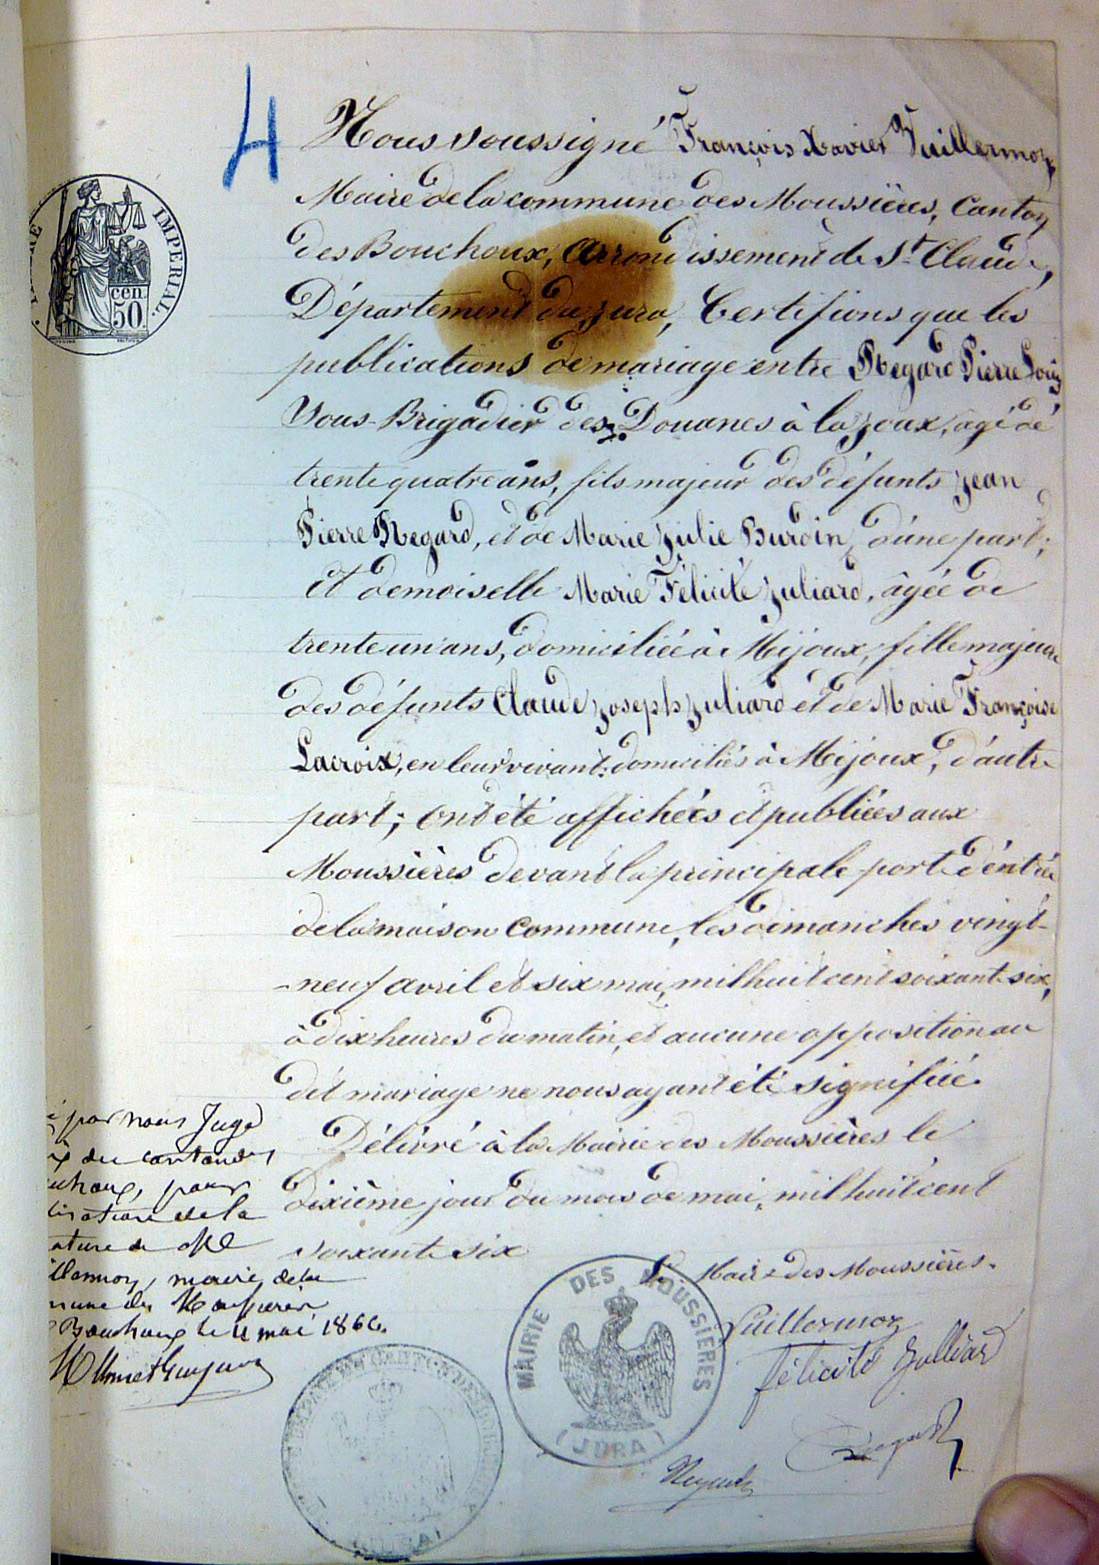 4
Nous soussigné François Xavier Vuillermoz
Maire de la commune des Moussières, Canton
des Bouchoux, Arrondissement de St. Claude,
Département du Jura, Certifions que les
publications de mariage entre Regard Pierre Louis
Sous-Brigadier des Douanes à la Joux, agé de
trente quatre ans, fils majeur des défunts Jean
Pierre Regard, et de Marie Julie Burdin, d'une part;
Et demoiselle Marie Félicité Juliard, âgée de
trente un ans, domiciliée à Mijoux, fille majeure
des défunts Claude Joseph Juliard et de Marie Françoise
Lacroix, en leur vivant domiciliés à Mijoux, d'autre
part; ont été affichées et publiées aux
Moussières devant la principale porte d'entrée
de la maison commune, les dimanches vingt-
neuf avril et six mai, mil huit cent soixante six,
à dix heures du matin, et aucune opposition au
dit mariage ne nous ayant été signifiée.
Délivré à la Mairie des Moussières le
dixième jour du mois de mai, mil huit cent
soixante six
Le Maire des Moussières.
Vuillermoz
Félicité Julliard
Regard
Regard
par nous Juge
du canton des
pour
de la
de
maire de la
le 11 mai 1866.
IMPERIAL.
cen.
50
MAIRIE DES MOUSSIÈRES
(JURA)